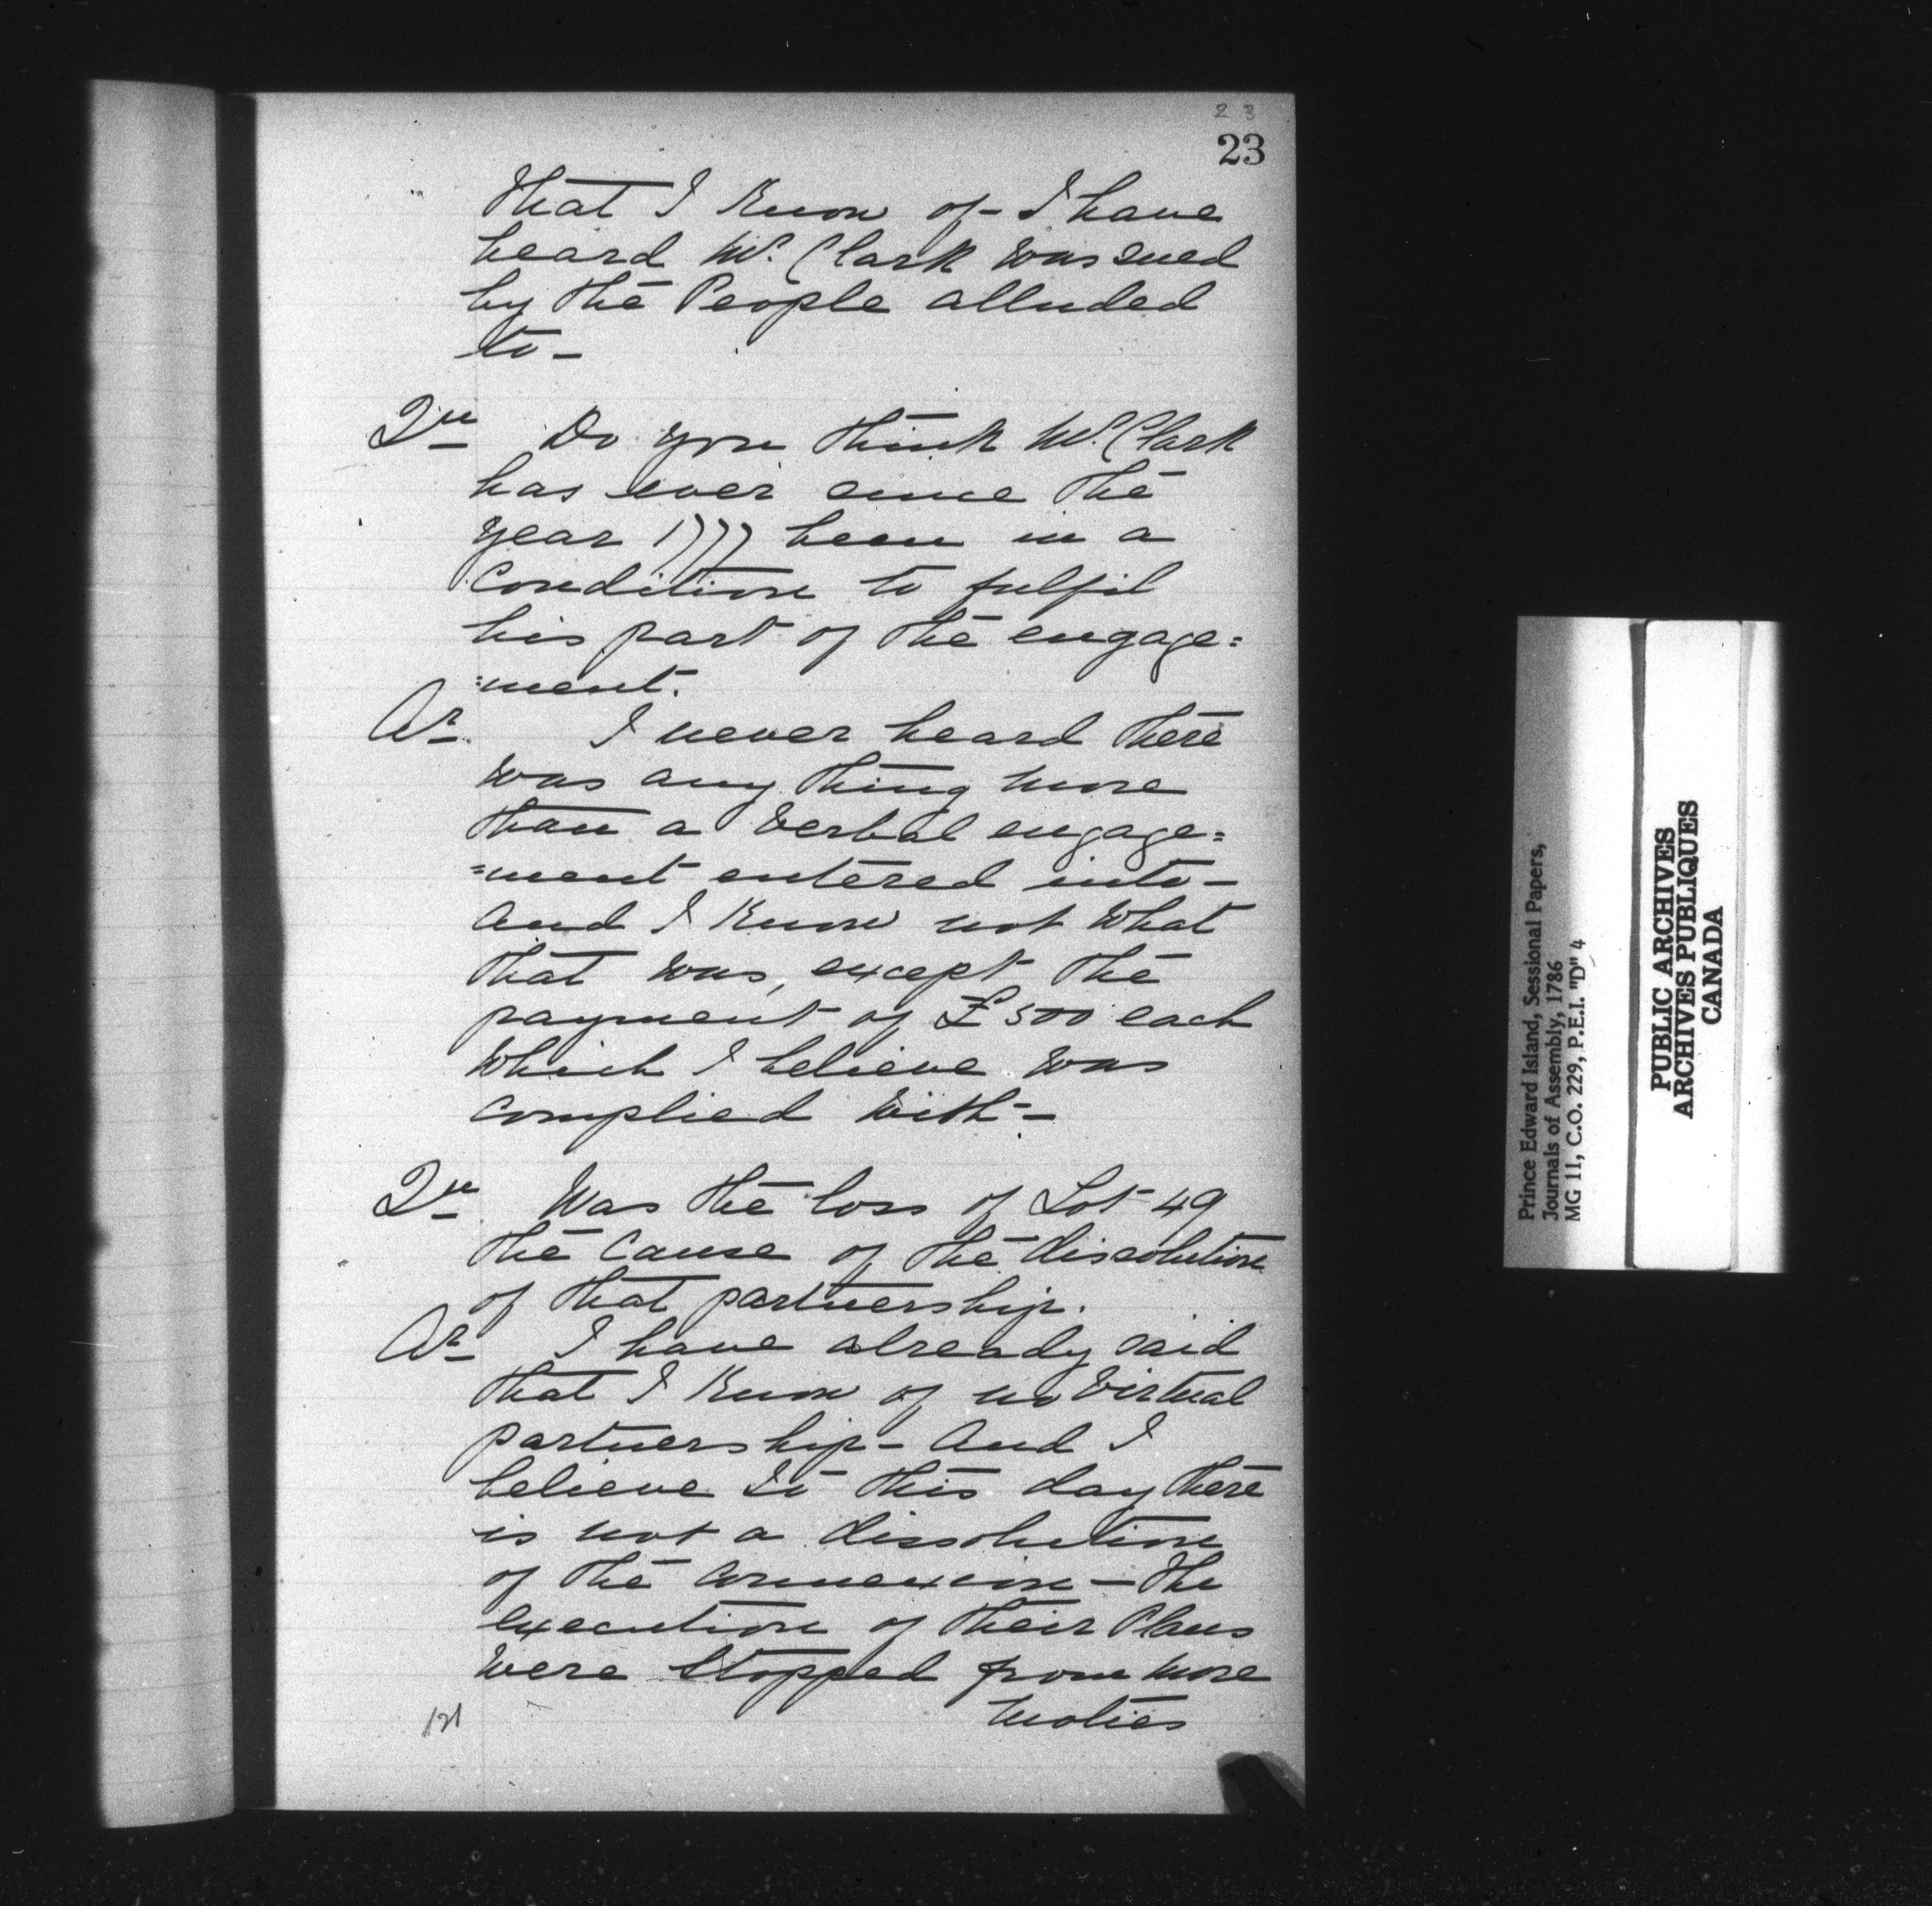 2 3
23
that I Know of - I have
heard Mr. Clark was sued
by the People alluded
to -
Qu Do you think Mr. Clark
has ever since the
year 1777 been in a
Condition to fulfil
his part of the engage=
=ment.
Ar. I never heard there
was any thing more
than a Verbal engage=
=ment entered into -
and I Know not what
that was, except the
payment of £500 each
which I believe was
complied with -
Qu Was the loss of Lot 49
the Cause of the dissolution
of that partnership.
Ar I have already said
that I Know of no Virtual
partnership - and I
believe to this day there
is not a dissolution
of the connexion - the
execution of their Plans
were stopped from more
moties
121
Prince Edward Island, Sessional Papers,
Journals of Assembly, 1786
MG 11, C.O. 229, P.E.I. "D" 4
PUBLIC ARCHIVES
ARCHIVES PUBLIQUES
CANADA